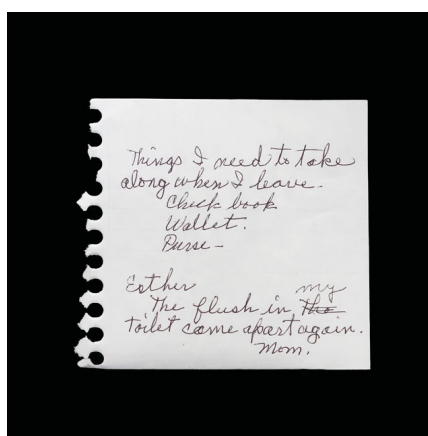 Things I need to take
along when I leave.
Check book
Wallet.
Purse –
Esther
my
The flush in the
toilet came apart again.
Mom.